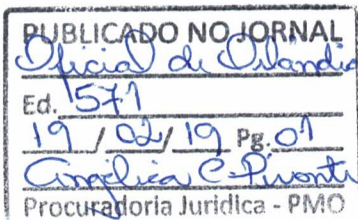 PUBLICADO NO JORNAL
Oficial de Orlândia
Ed. 571
19 / 02 / 19 Pg. 01
Angélica C
Procuradoria Jurídica - PMO